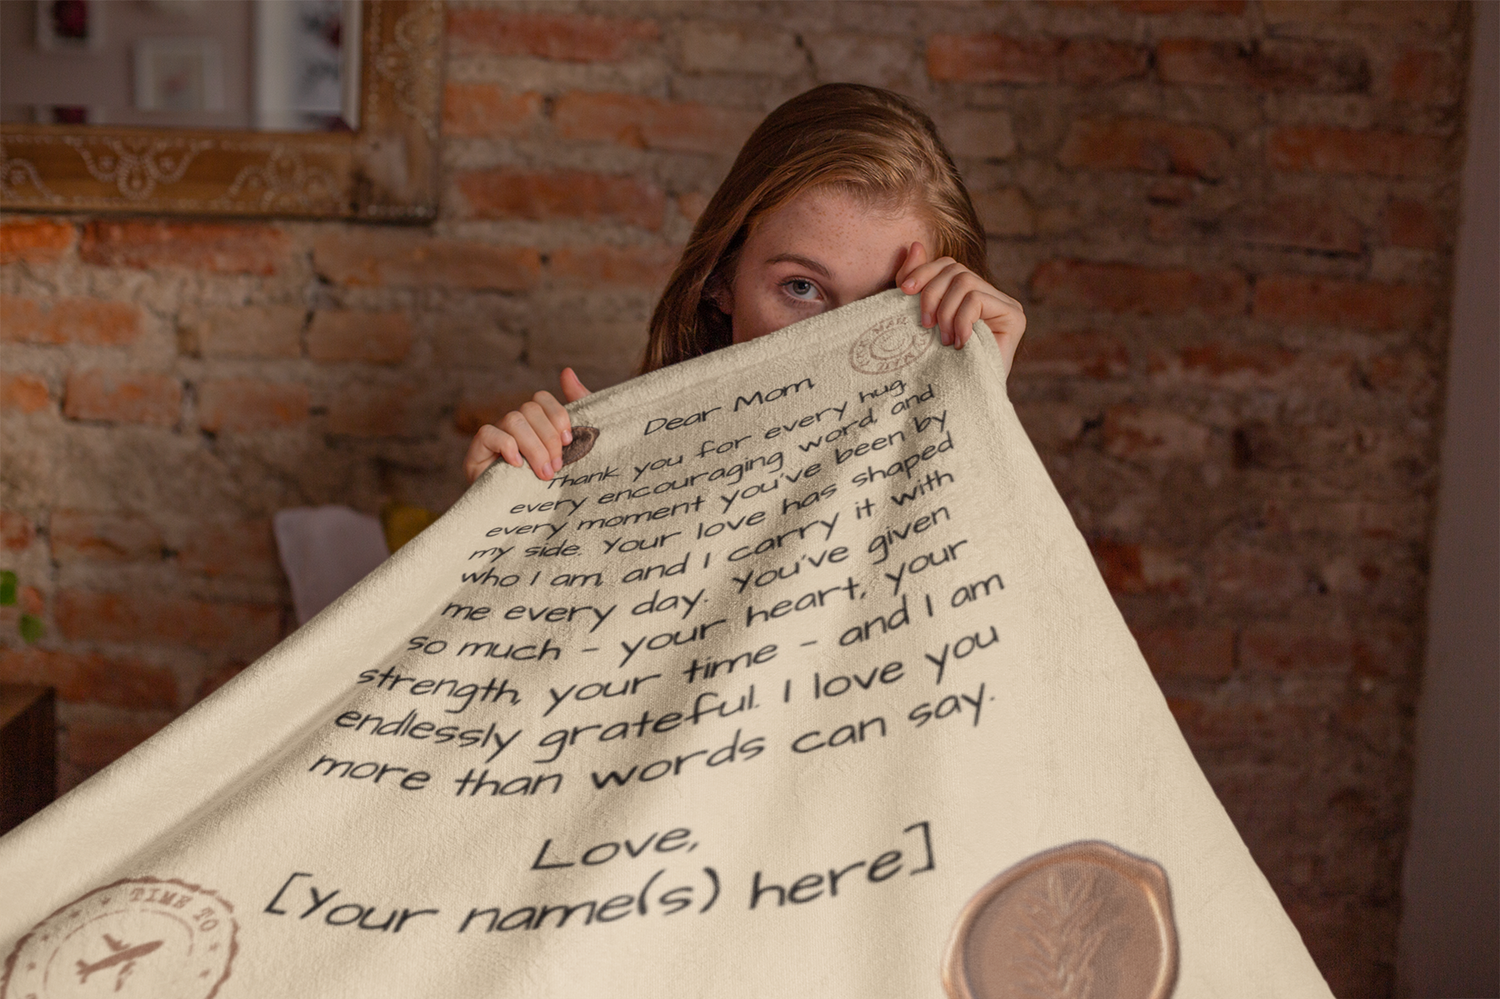 Dear Mom,
Thank you for every hug,
every encouraging word, and
every moment you've been by
my side. Your love has shaped
who I am, and I carry it with
me every day. You've given
so much - your heart, your
strength, your time - and I am
endlessly grateful. I love you
more than words can say.
Love,
[Your name(s) here]
TIME TO